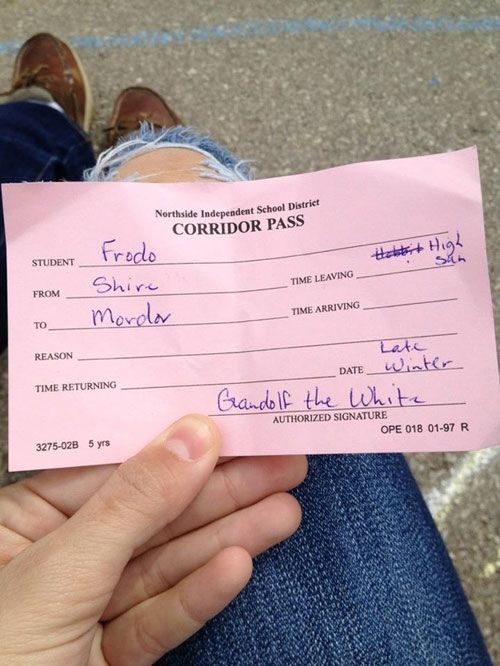 Northside Independent School District
CORRIDOR PASS
STUDENT Frodo
FROM Shire TIME LEAVING Hobbit High Sun
TO Mordor TIME ARRIVING
REASON
TIME RETURNING DATE Late Winter
Gandolf the White
AUTHORIZED SIGNATURE
3275-02B 5 yrs OPE 018 01-97 R